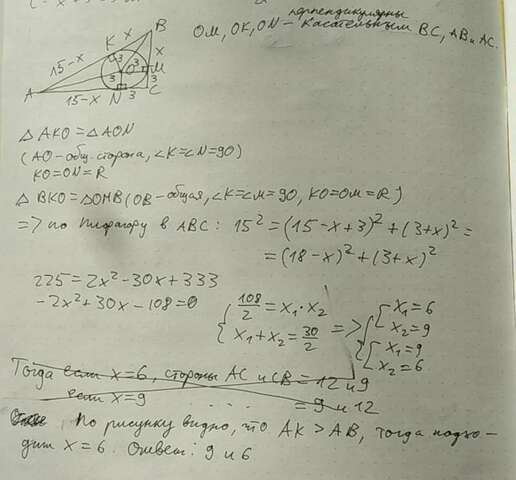 перпендикулярны
OM, OK, ON - касательным BC, AB и AC.
B
K
x
15-x
3
O
3
x
M
3
3
A
15-x
N
3
C
△ AKO = △ AON
(AO - общ. сторона, ∠K = ∠N = 90)
KO = ON = R
△ BKO = △OMB (OB - общая, ∠K = ∠M = 90, KO = OM = R)
=> по Пифагору в ABC: 15² = (15-x+3)² + (3+x)² =
= (18-x)² + (3+x)²
225 = 2x² - 30x + 333
-2x² + 30x - 108 = 0
{ 108/2 = x₁ · x₂
x₁ + x₂ = 30/2 =>
{ x₁ = 6
x₂ = 9
{ x₁ = 9
x₂ = 6
Тогда если x = 6, стороны AC и CB = 12 и 9
если x = 9 = 9 и 12
По рисунку видно, что AK > AB, тогда подхо-
дит x = 6. Ответ: 9 и 6